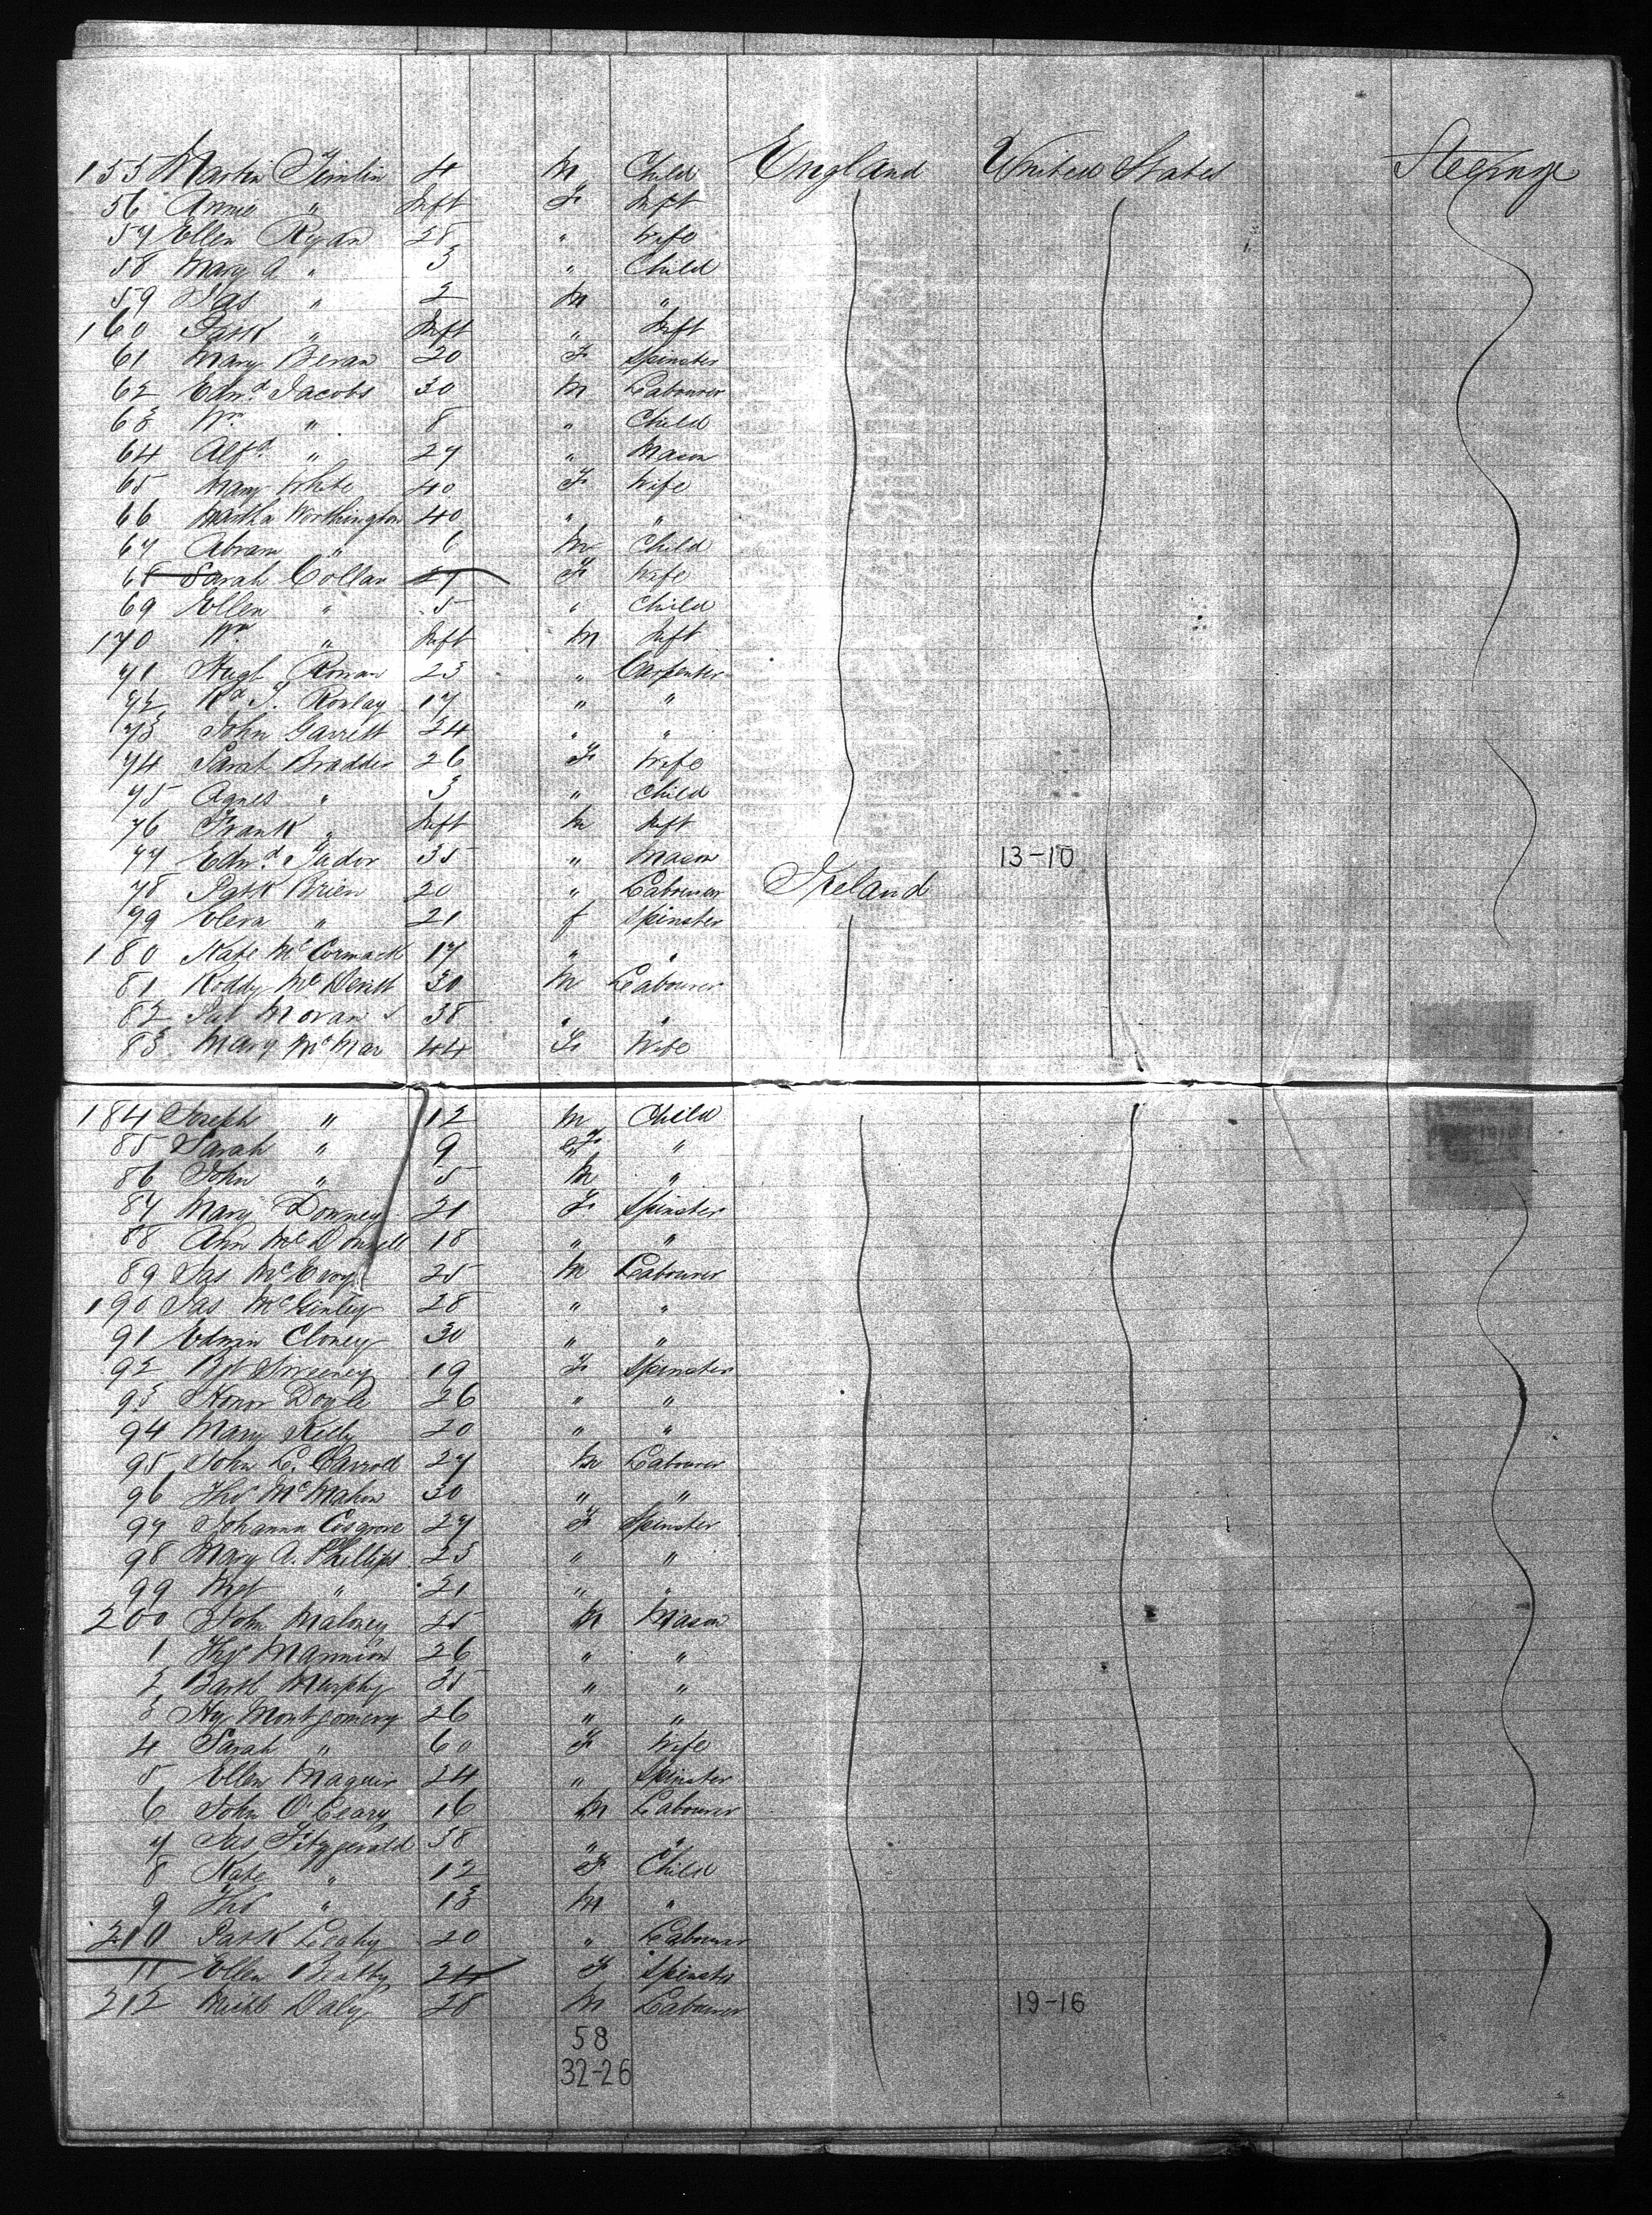 155 Martin Timlin 4 M Child England United States Steerage
56 Annie " Inft F Inft
57 Ellen Ryan 28 " Wife
58 Mary A " 3 " Child
59 Jas " 2 M "
160 Patk " Inft " Inft
61 Mary Beran 20 F Spinster
62 Edwd. Jacobs 30 M Labourer
63 Wm " 8 " Child
64 Alfd. " 27 " Mason
65 Mary White 40 F Wife
66 Martha Worthington 40 " "
67 Abram " 6 M Child
68 Sarah Collan 27 F Wife
69 Ellen " 5 " Child
170 Wm " Inft M Inft
71 Hugh Ronan 23 " Carpenter
72 Rd. T. Rowlay 17 " "
73 John Garrett 24 " "
74 Sarah Braddis 26 F Wife
75 Agnes " 3 " Child
76 Frank " Inft M Inft
77 Edwd. Tudor 35 " Mason 13-10
78 Patk Brien 20 " Labourer Ireland
79 " 21 f Spinster
180 Kate McCormack 17 " "
81 Roddy McDevitt 30 M Labourer
82 Pat Moran 38 " "
83 Mary McMar 44 F Wife
184 Joseph " 12 M Child
85 Sarah " 9 F "
86 John " 5 M "
87 Mary Downey 21 F Spinster
88 Ann McDonnell 18 " "
89 Jas McEvoy 25 M Labourer
190 Jas McGinley 28 " "
91 Edwin Cloney 30 " "
92 Bgt Sweeney 19 F Spinster
93 Honor Doyle 26 " "
94 Mary Kelly 20 " "
95 John C. Carroll 27 M Labourer
96 Thos McMahon 30 " "
97 Johanna Cosgrove 27 F Spinster
98 Mary A. Phillips 23 " "
99 Mgt " 21 " "
200 John Maloney 25 M Mason
1 Thos Mannion 26 " "
2 Bartl Murphy 35 " "
3 Hy Montgomery 26 " "
4 Sarah " 60 F Wife
5 Ellen Maguir 24 " Spinster
6 John O'Leary 16 M Labourer
7 Jas Fitzgerald 38 " "
8 Kate " 12 F Child
9 Tho " 13 M "
210 Patk Leahy 20 " Labourer
11 Ellen Beatty 24 F Spinster
212 Michl Daly 28 M Labourer 19-16
58
32-26